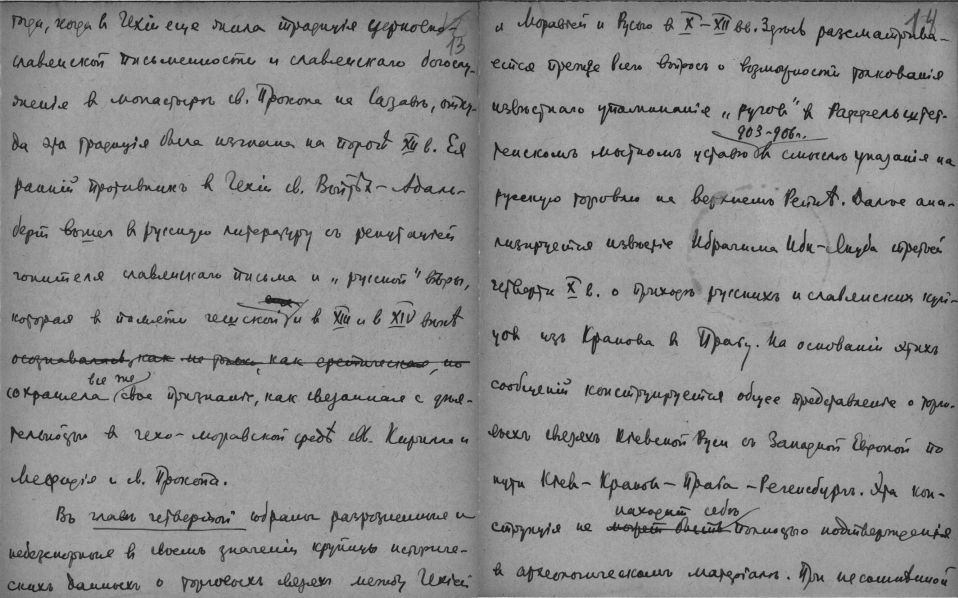 13
года, когда в Чехіи еще жила традиція церковно-
славянской письменности и славянскаго богослу-
женія в монастырѣ св. Прокопа на Сазавѣ, отку-
да эта традиція была изгнана на порогѣ XII в. Ея
ранній противникъ в Чехіи св. Войтѣх-Адаль-
берт вошел в русскую литературу съ репутаціей
гонителя славянскаго письма и „русской" вѣры,
которая в памяти чешской и в XIII и в XIV вѣкѣ
осознавалась, как не только, как еретическая, но
все же
сохраняла свое признаніе, как связанная с дѣя-
тельностью в чехо-моравской средѣ св. Кирилла и
Мефодія и св. Прокопа.
Въ главѣ четвертой собраны разрозненные и
небезспорные в своемъ значеніи крупицы историче-
ских данных о торговых связях между Чехіей
14
и Моравіей и Русью в X–XII вв. Здѣсь разсматрива-
ется прежде всего вопрос о возможности толкованія
извѣстнаго упоминанія „ругов" в Раффельштет-
903-906г.
тенскомъ мытномъ уставѣ в смыслѣ указанія на
русскую торговлю на верхнемъ Рейнѣ. Далѣе ана-
лизируется извѣстіе Ибрагима Ибн-Якуба третьей
четверти X в. о приходѣ русских и славянских куп-
цов изъ Кракова в Прагу. На основаніи этих
сообщеній конструируется общее представленіе о торго-
вых связях Кіевской Руси съ Западной Европой по
пути Кіев-Краков-Прага-Регенсбург. Эта кон-
находит себѣ
струкція не может быть помощью подтвержденія
в археологическомъ матеріалѣ. При несомнѣнной